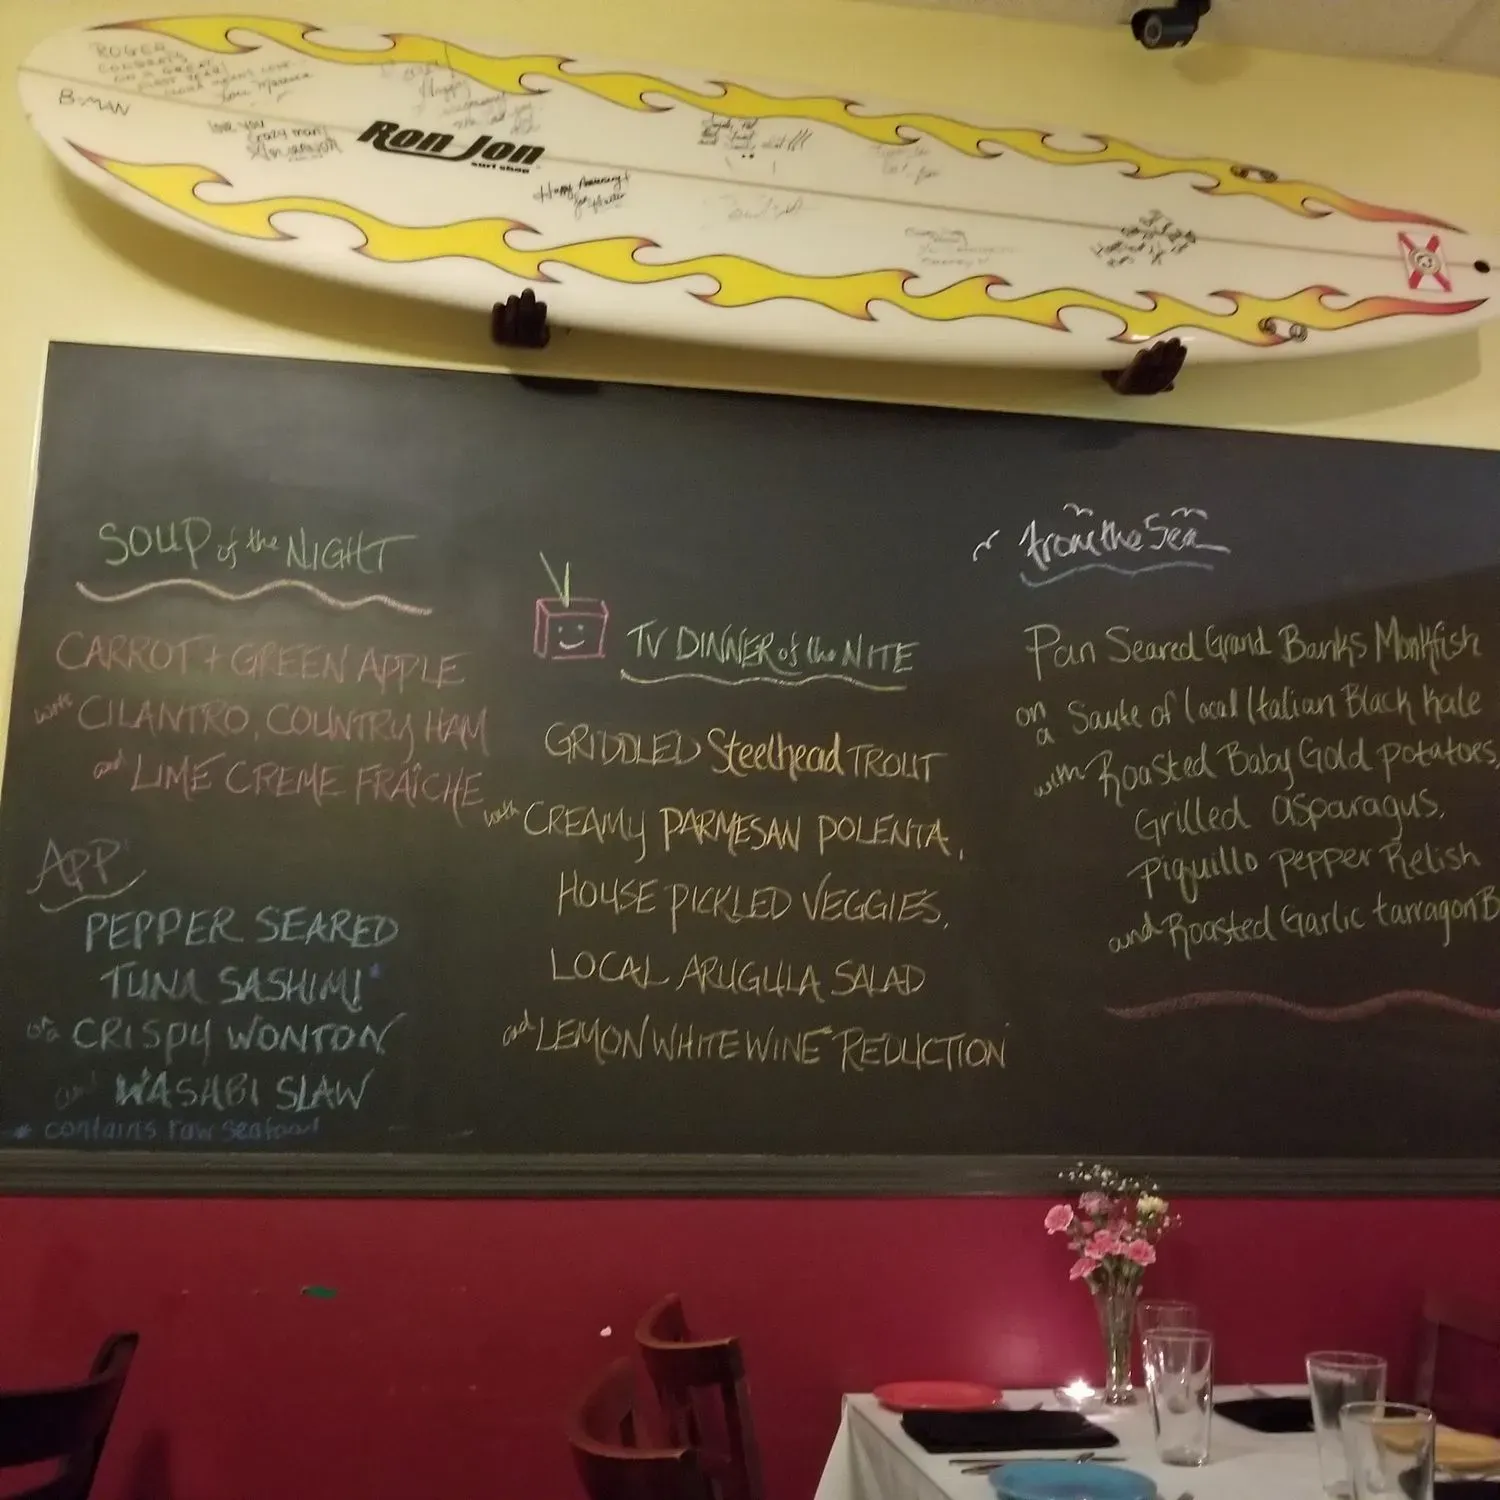 ROGER
B-MAN
LOVE YOU
CRAZY MAN!
Ron Jon
surf shop
Happy Anniversary!
SOUP of the NIGHT
CARROT + GREEN APPLE
with CILANTRO, COUNTRY HAM
and LIME CREME FRAÎCHE
APP
PEPPER SEARED
TUNA SASHIMI*
on a CRISPY WONTON
and WASABI SLAW
* contains raw seafood
TV DINNER of the NITE
GRIDDLED Steelhead TROUT
with CREAMY PARMESAN POLENTA,
HOUSE PICKLED VEGGIES,
LOCAL ARUGULA SALAD
and LEMON WHITE WINE REDUCTION
from the Sea
Pan Seared Grand Banks Monkfish
on a Saute of Local Italian Black Kale
with Roasted Baby Gold potatoes,
Grilled asparagus,
Piquillo pepper Relish
and Roasted Garlic tarragon B